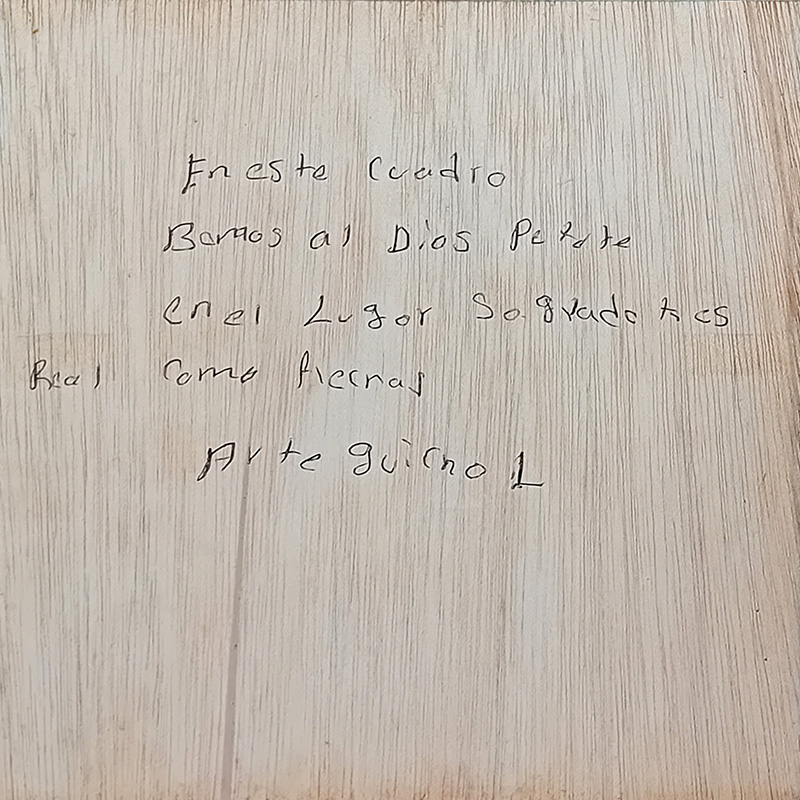 En este Cuadro
Bamos al Dios Pe yo te
en el Lugar Sagrado
Real Como
Arte guicho L